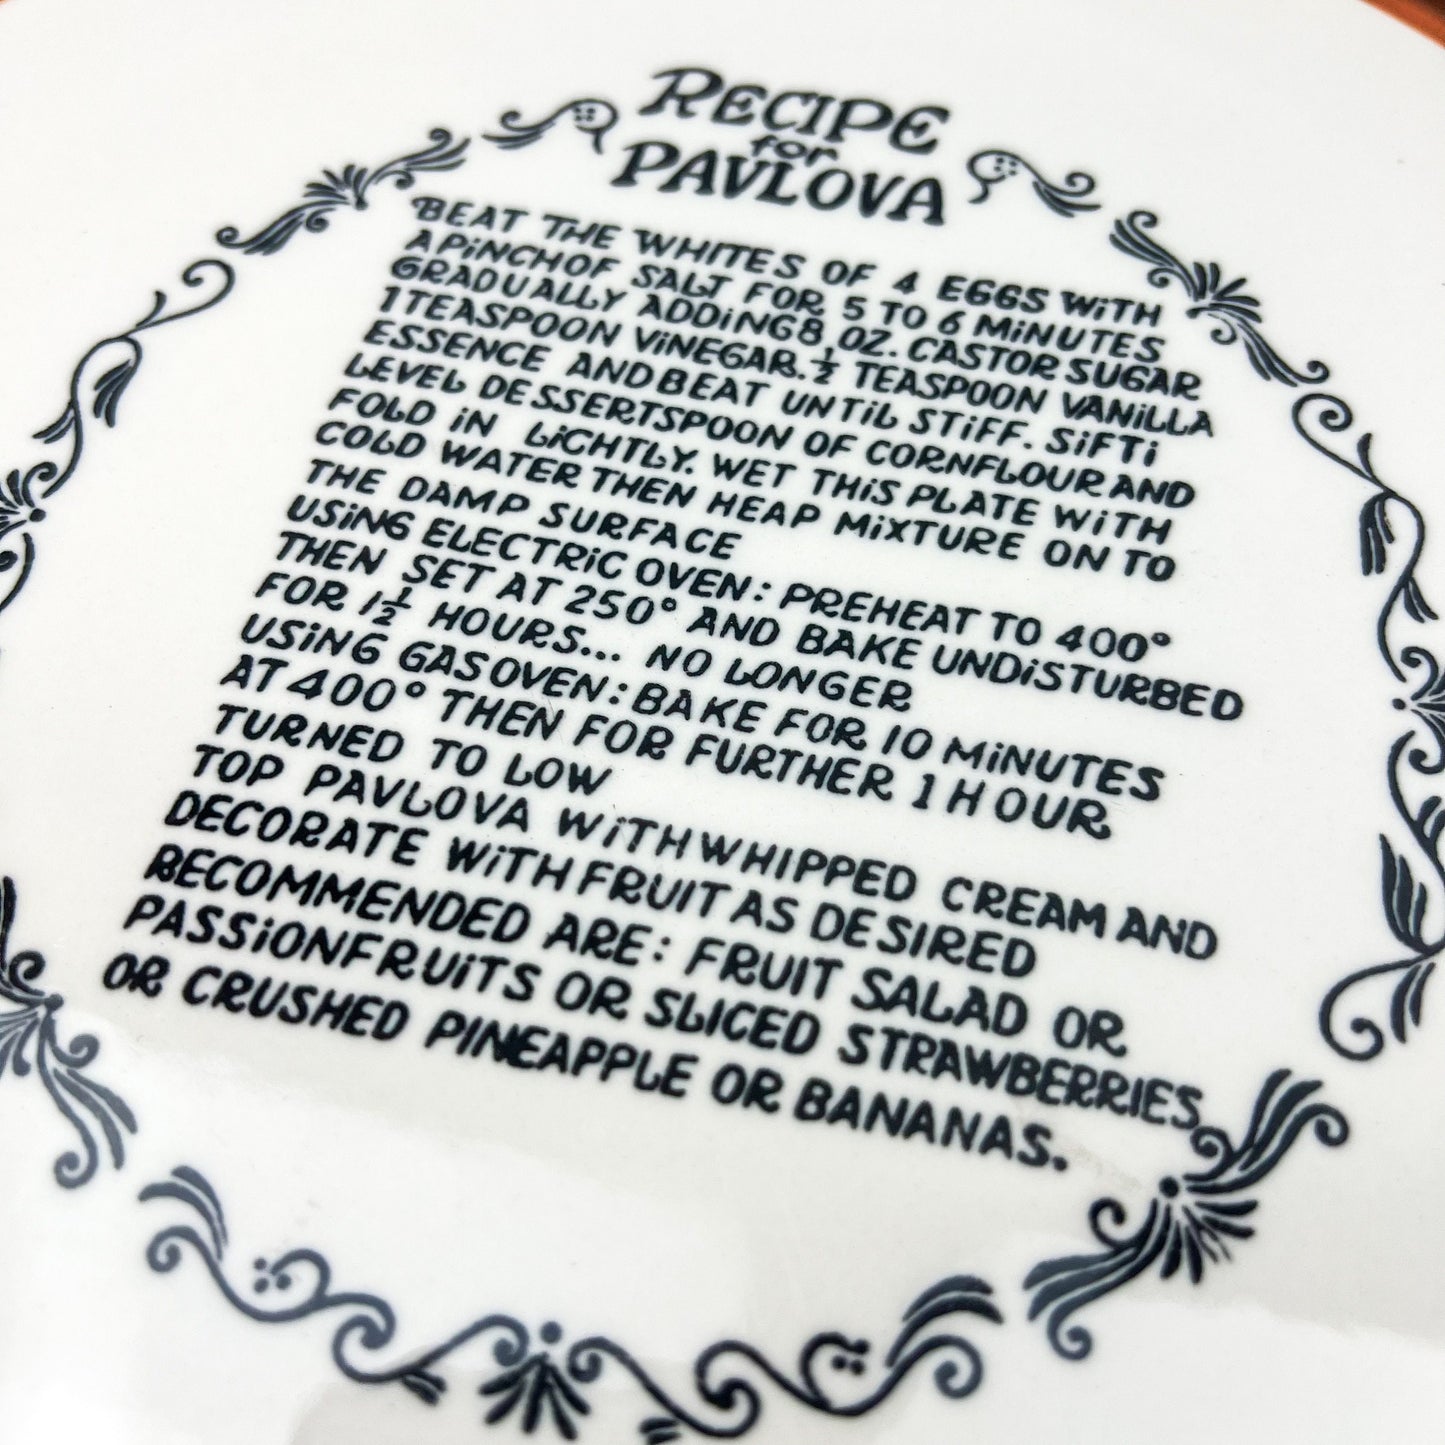 RECIPE
for
PAVLOVA
BEAT THE WHITES OF 4 EGGS WITH
A PiNCH OF SALT FOR 5 TO 6 MiNUTES
GRADUALLY ADDiNG 8 OZ. CASTOR SUGAR
1 TEASPOON ViNEGAR. ½ TEASPOON VANiLLA
ESSENCE AND BEAT UNTiL STiFF. SiFT i
LEVEL DESSERTSPOON OF CORNFLOUR AND
FOLD iN LiCHTLY. WET THiS PLATE WiTH
COLD WATER THEN HEAP MiXTURE ON TO
THE DAMP SURFACE
USiNG ELECTRiC OVEN: PREHEAT TO 400°
THEN SET AT 250° AND BAKE UNDiSTURBED
FOR 1½ HOURS... NO LONGER
USiNG GAS OVEN: BAKE FOR 10 MiNUTES
AT 400° THEN FOR FURTHER 1 HOUR
TURNED TO LOW
TOP PAVLOVA WiTH WHIPPED CREAM AND
DECORATE WiTH FRUIT AS DESIRED
RECOMMENDED ARE: FRUIT SALAD OR
PASSiONFRUiTS OR SLICED STRAWBERRIES
OR CRUSHED PINEAPPLE OR BANANAS.